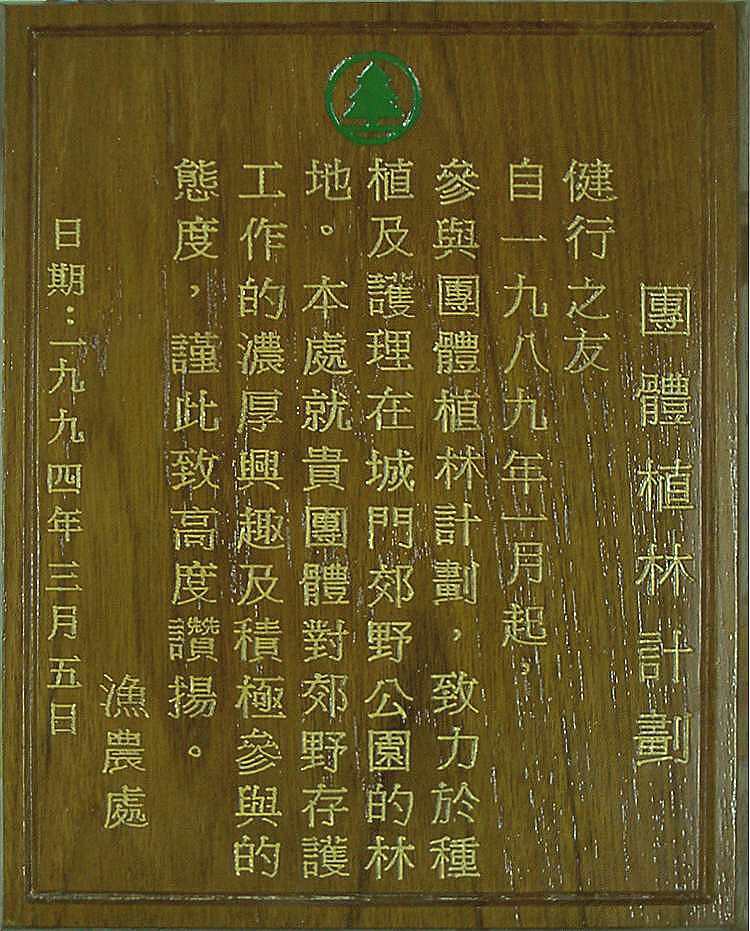 團體植林計劃
健行之友
自一九八九年一月起，
參與團體植林計劃，致力於種
植及護理在城門郊野公園的林
地。本處就貴團體對郊野存護
工作的濃厚興趣及積極參與的
態度，謹此致高度讚揚。
漁農處
日期：一九九四年三月五日